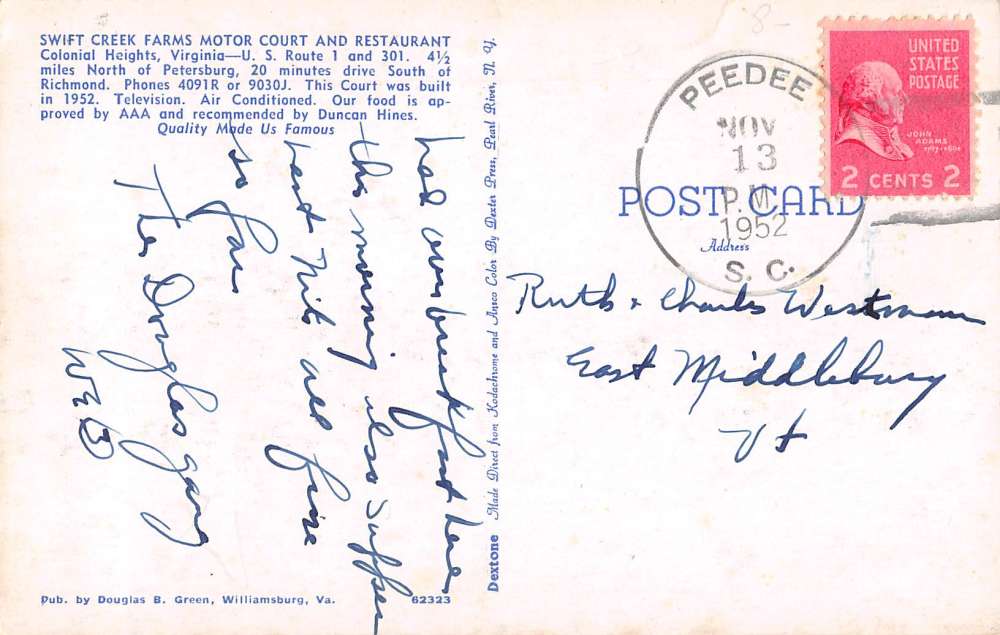 SWIFT CREEK FARMS MOTOR COURT AND RESTAURANT
Colonial Heights, Virginia—U. S. Route 1 and 301. 4½
miles North of Petersburg, 20 minutes drive South of
Richmond. Phones 4091R or 9030J. This Court was built
in 1952. Television. Air Conditioned. Our food is ap-
proved by AAA and recommended by Duncan Hines.
Quality Made Us Famous
had our breakfast here
this morning also supper
last nite all fine
so far
The Douglas gang
Pub. by Douglas B. Green, Williamsburg, Va.
62323
Dextone Made Direct from Kodachrome and Ansco Color By Dexter Press, Pearl River, N. Y.
PEEDEE
NOV
13
P.M.
1952
S. C.
UNITED
STATES
POSTAGE
JOHN
ADAMS
1797-1801
2 CENTS 2
POST CARD
Address
Ruth & Charles Westman
East Middlebury
Vt